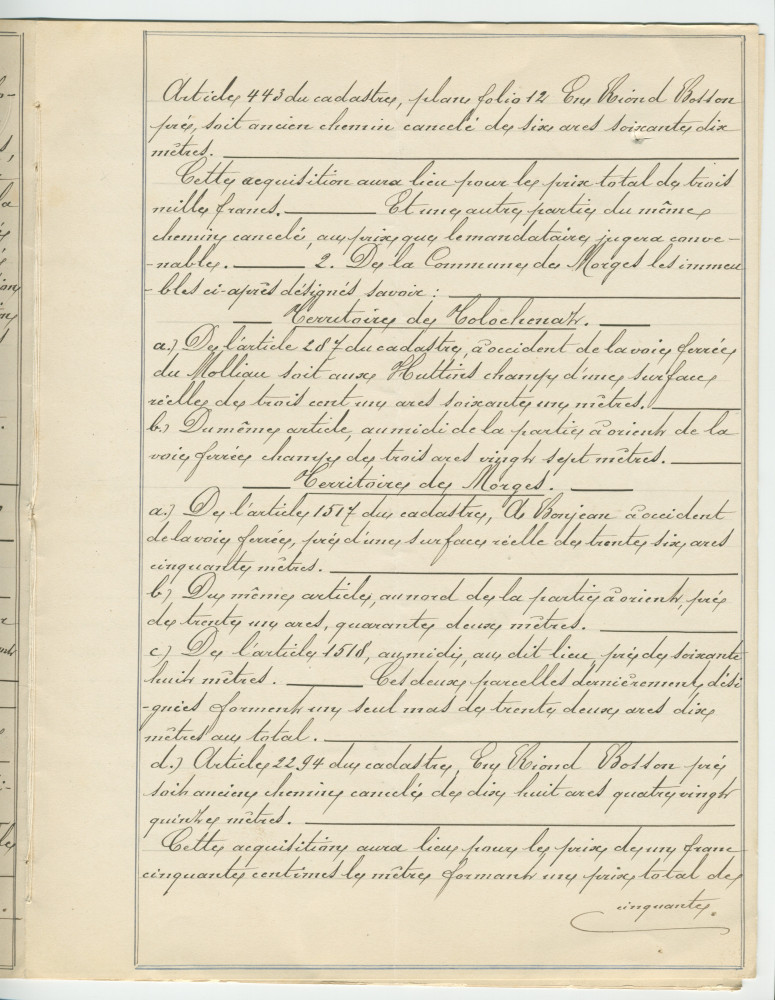 Article 443 du cadastre, plan folio 12 En Riond Bosson
pré, soit ancien chemin cancelé de six ares soixante dix
mètres.
Cette acquisition aura lieu pour le prix total de trois
mille francs. Et une autre partie du même
chemin cancelé, au prix que le mandataire jugera conve-
-nable. 2. De la Commune de Morges les immeu
-bles ci-après désignés savoir :
Territoire de Tolochenaz.
a.) De l'article 287 du cadastre, à occident de la voie ferrée
du Molliau soit aux Huttins champ d'une surface
réelle de trois cent un ares soixante un mètres.
b.) Du même article, au midi de la partie à orient de la
voie ferrée champ de trois ares vingt sept mètres.
Territoire de Morges.
a.) De l'article 1517 du cadastre, A Bonjean à occident
de la voie ferrée, pré d'une surface réelle de trente six ares
cinquante mètres.
b) Du même article, au nord de la partie à orient, pré
de trente un ares, quarante deux mètres.
c) De l'article 1518, au midi, au dit lieu, pré de soixante
huit mètres. Ces deux parcelles dernièrement dési
-gnées forment un seul mas de trente deux ares dix
mètres au total.
d.) Article 2294 du cadastre, En Riond Bosson pré
soit ancien chemin cancelé de dix huit ares quatre vingt
quinze mètres.
Cette acquisition aura lieu pour le prix de un franc
cinquante centimes le mètre formant un prix total de
cinquante.